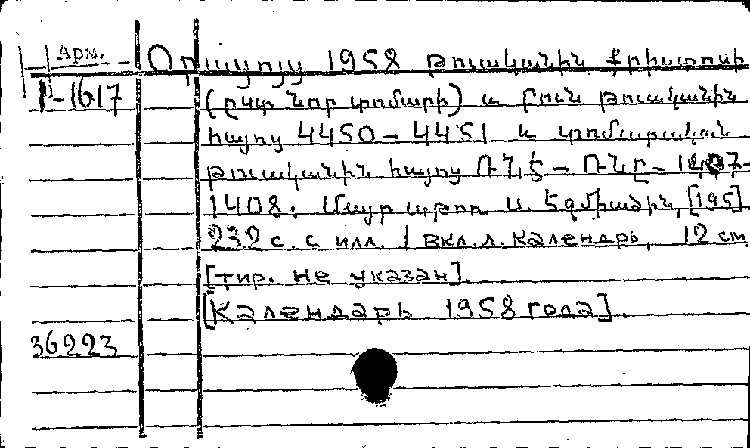 Арм. Օրացույց 1958 թուականին Քրիստոսի
I-1617 (ըստ նոր տոմարի) և բուն թուականին
հայոց 4450-4451 և տոմարական
թուականին հայոց ՌՆԷ - ՌՆԸ - 1407-
1408: Մայր աթոռ Ս. Եզմիածին, [195]
232 с. с илл. 1 вкл. л. календарь, 12 см
[тир. не указан].
[Календарь 1958 года].
36223